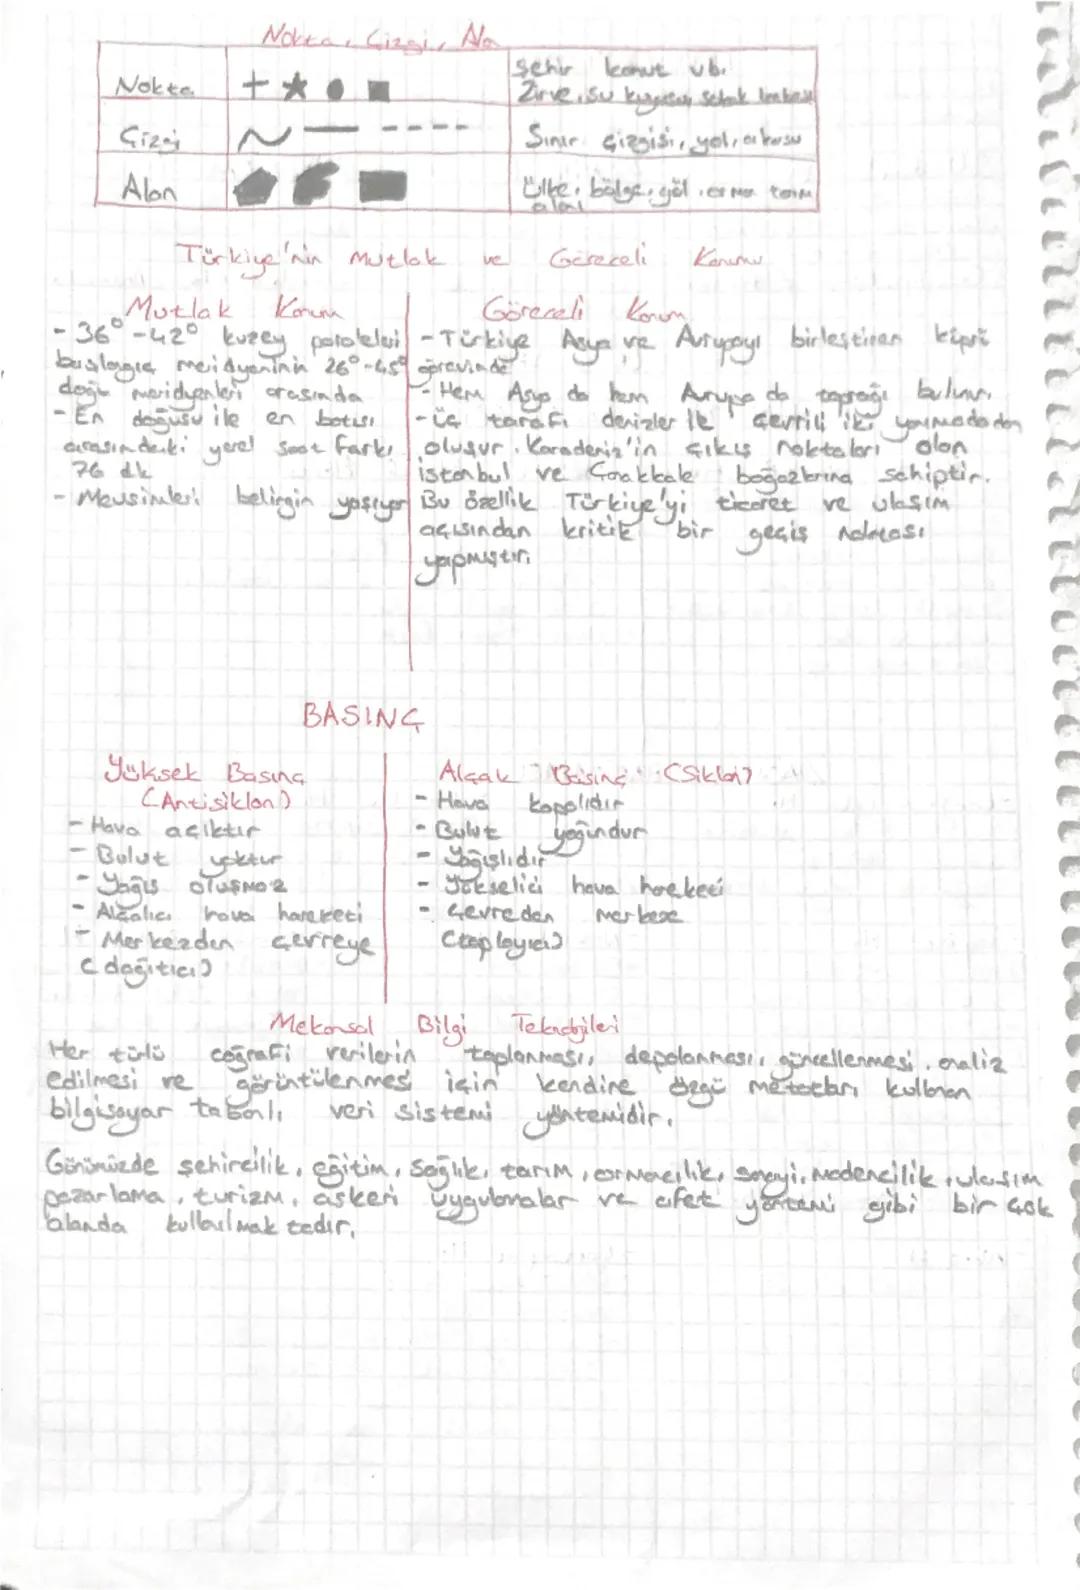 Nokta, Çizgi, Ala
Nokta
Şehir konut vb.
Zirve, su kuyusu, sokak lambası
Çizgi
Sınır çizgisi, yol, akarsu
Alan
Ülke, bölge, göl, orman tarım
alanı
Türkiye'nin Mutlak ve Göreceli Konumu
Mutlak Konum
- 36° - 42° kuzey paralelleri
başlangıç meridyeninin 26°-45°
doğu meridyenleri arasında
- En doğusu ile en batısı
arasındaki yerel saat farkı
76 dk
- Mevsimleri belirgin yaşıyor
Göreceli Konum
- Türkiye Asya ve Avrupayı birleştiren köprü
görevinde
- Hem Asya da hem Avrupa da toprağı bulunur.
- üç tarafı denizler ile çevrili iki yarımadadan
oluşur. Karadeniz'in çıkış noktaları olan
istanbul ve Çanakkale boğazlarına sahiptir.
Bu özellik Türkiye'yi ticaret ve ulaşım
açısından kritik bir geçiş noktası
yapmıştır.
BASINÇ
Yüksek Basınç
(Antisiklon)
- Hava açıktır
- Bulut yoktur
- Yağış oluşmaz
- Alçalıcı hava hareketi
- Merkezden çevreye
(dağıtıcı)
Alçak Basınç (Siklon)
- Hava kapalıdır
- Bulut yoğundur
- Yağışlıdır
- Yükselici hava hareketi
- Çevreden merkeze
(toplayıcı)
Mekansal Bilgi Teknolojileri
Her türlü coğrafi verilerin toplanması, depolanması, güncellenmesi, analiz
edilmesi ve görüntülenmesi için kendine özgü metotları kullanan
bilgisayar tabanlı veri sistemi yöntemidir.
Günümüzde şehircilik, eğitim, sağlık, tarım, ormancılık, sanayi, madencilik, ulaşım
pazarlama, turizm, askeri uygulamalar ve afet yönetimi gibi bir çok
alanda kullanılmaktadır.